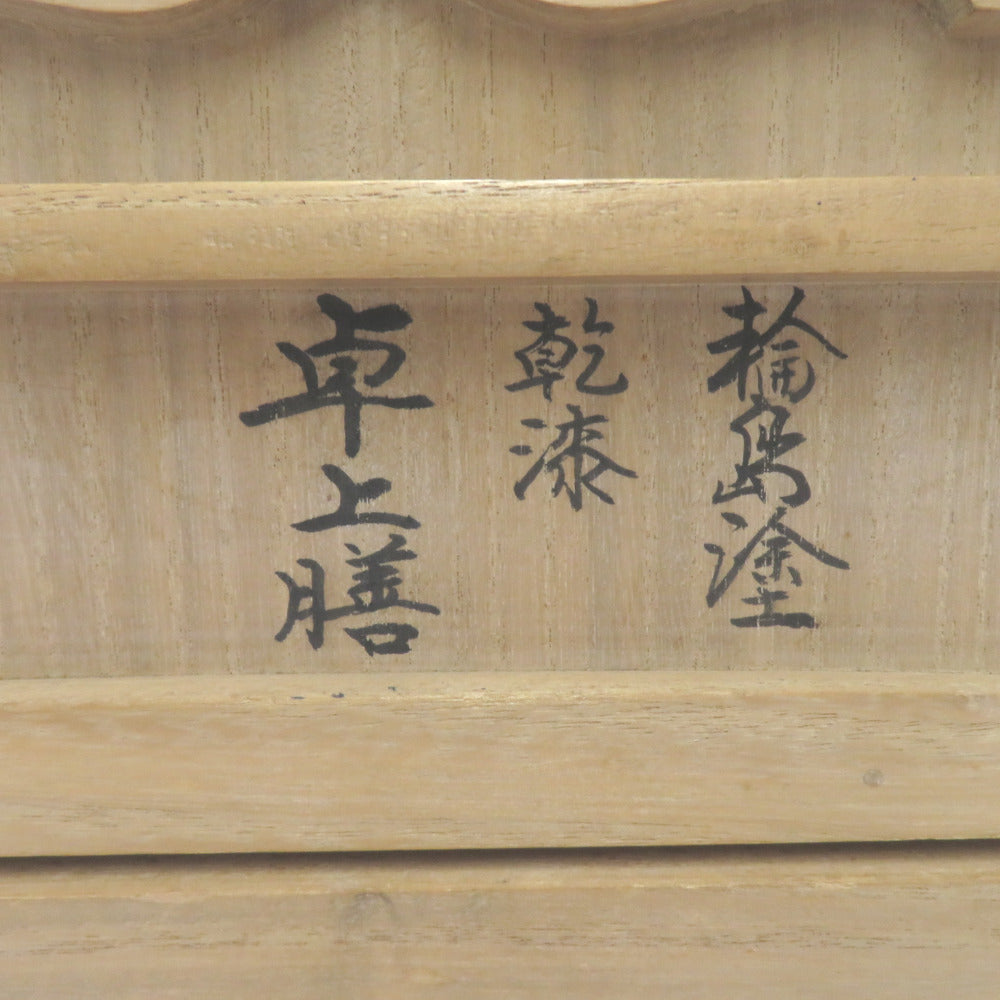 輪島塗
乾漆
卓上膳